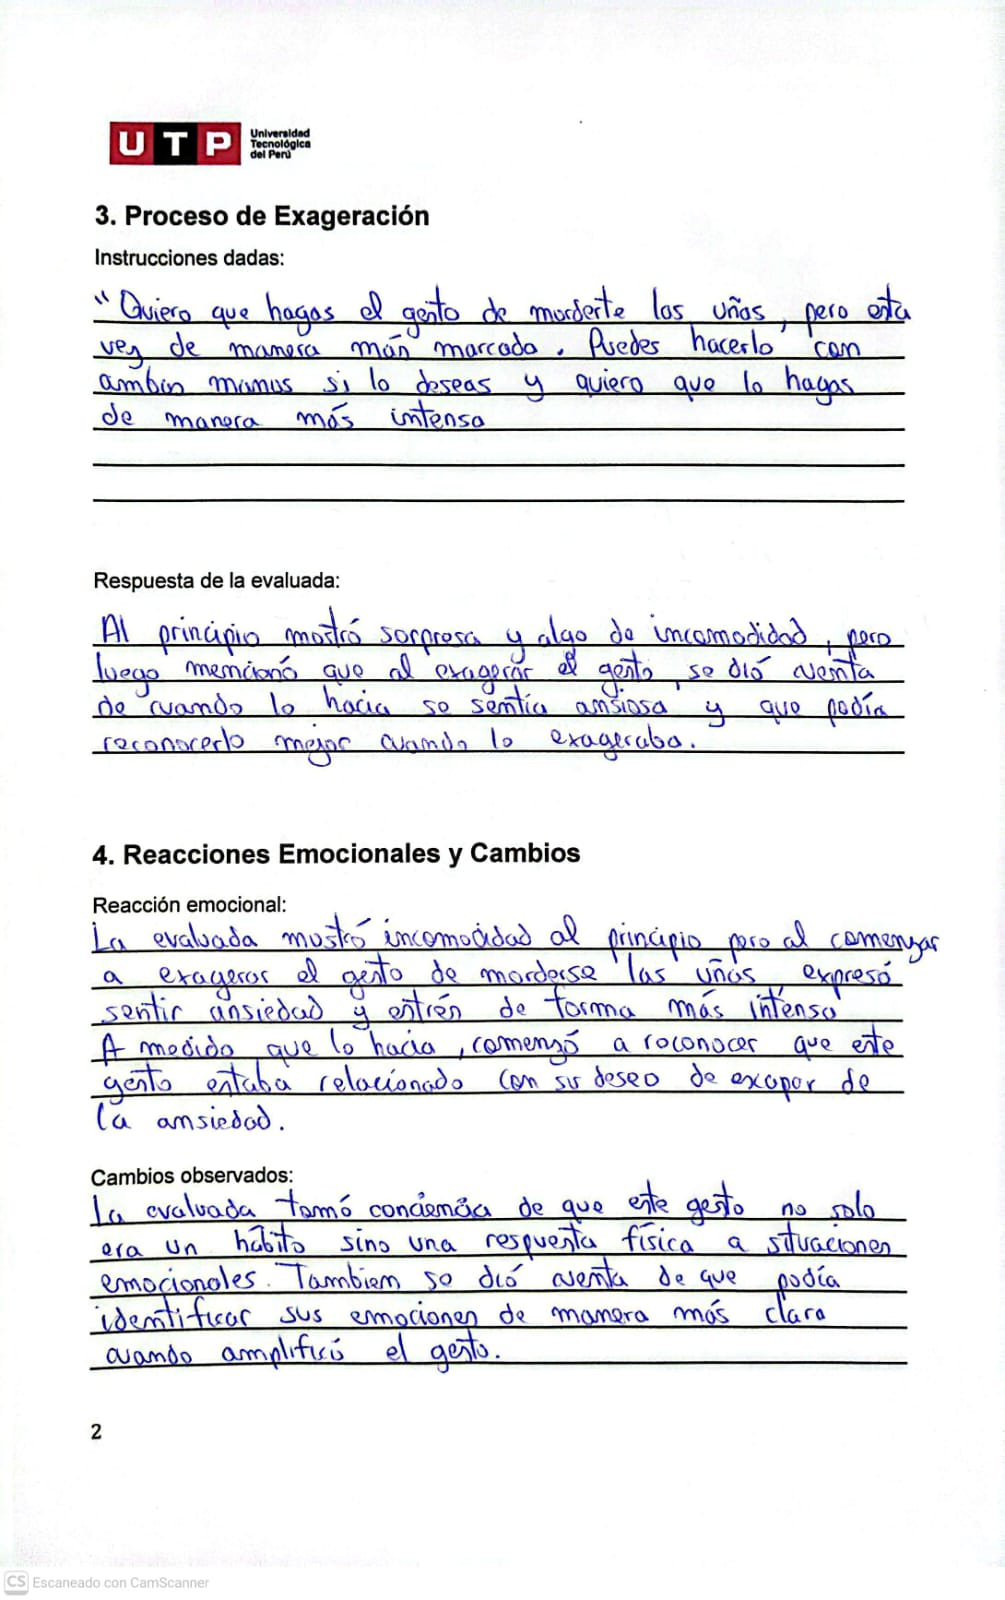 UTP Universidad
Tecnológica
del Perú
3. Proceso de Exageración
Instrucciones dadas:
"Quiero que hagas el gesto de morderte las uñas, pero esta
vez de manera más marcada. Puedes hacerlo con
ambas manos si lo deseas y quiero que lo hagas
de manera más intensa
Respuesta de la evaluada:
Al principio mostró sorpresa y algo de incomodidad, pero
luego mencionó que al exagerar el gesto, se dió cuenta
de cuando lo hacia se sentía ansiosa y que podía
reconocerlo mejor cuando lo exageraba.
4. Reacciones Emocionales y Cambios
Reacción emocional:
La evaluada mostró incomodidad al principio pero al comenzar
a exagerar el gesto de morderse las uñas expresó
sentir ansiedad y estrés de forma más intensa
A medida que lo hacia, comenzó a reconocer que este
gesto estaba relacionado con su deseo de escapar de
la ansiedad.
Cambios observados:
La evaluada tomó conciencia de que este gesto no solo
era un hábito sino una respuesta física a situaciones
emocionales. Tambiem se dió cuenta de que podía
identificar sus emociones de manera más clara
cuando amplificó el gesto.
2
CS Escaneado con CamScanner